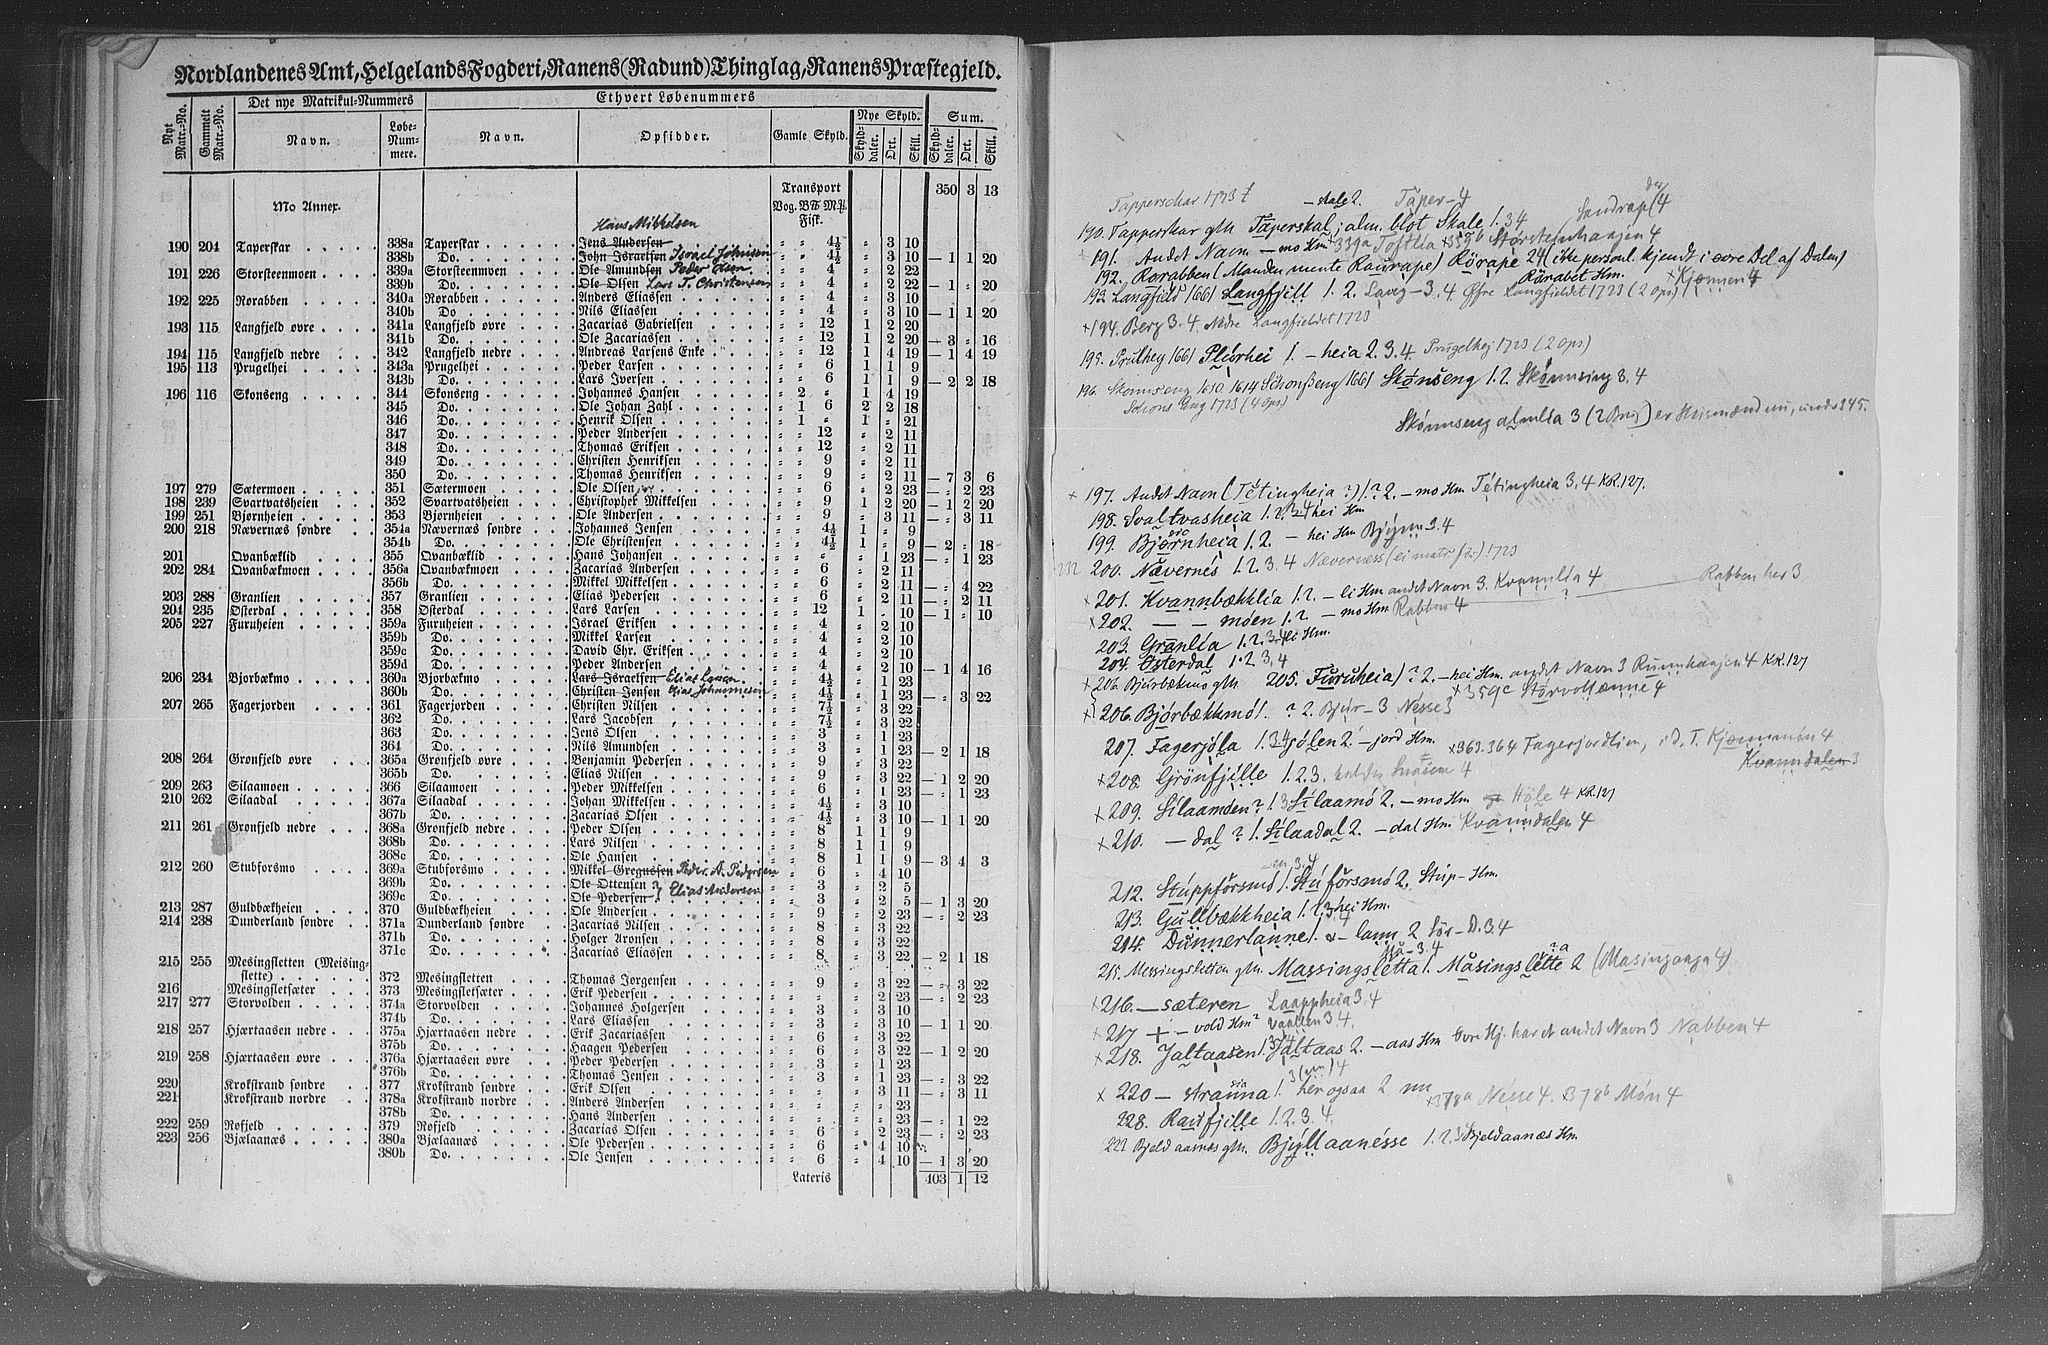 Nordlandenes Amt, Helgelands Fogderi, Ranens (Radund) Thinglag, Ranens Præstegjeld.
Nyt Matr.-No. Gammelt Matr.-No. Det nye Matrikul-Nummers Ethvert Løbenummers
Navn. Løbe-Nummere. Navn. Opsidder. Gamle Skyld. Nye Skyld. Sum.
Skylddaler. Ort. Skill. Skylddaler. Ort. Skill.
Transport 350 3 13
Mo Annex. Vog. B℔ M℔ Fisk.
Hans Mikkelsen
190 204 Taperskar 338a Taperskar Jens Andersen " " 4½ " 3 10
338b Do. John Israelsen Israel Johnsen " " 4½ " 3 10 — 1 1 20
191 226 Storsteenmoen 339a Storsteenmoen Ole Amundsen Peder Olsen " " 4 " 2 22
339b Do. Ole Olsen Lars T. Christensen " " 4 " 2 22 — 1 " 20
192 225 Rorabben 340a Rorabben Anders Eliassen " " 4 " 3 10
340b Do. Nils Eliassen " " 4 " 3 10 — 1 1 20
193 115 Langfjeld øvre 341a Langfjeld øvre Zacarias Gabrielsen " " 12 1 2 20
341b Do. Ole Zacariassen " " 12 1 2 20 — 3 " 16
194 115 Langfjeld nedre 342 Langfjeld nedre Andreas Larsens Enke " " 12 1 4 19 — 1 4 19
195 113 Prugelhei 343a Prugelhei Peder Larsen " " 6 1 1 9
343b Do. Lars Iversen " " 6 1 1 9 — 2 2 18
196 116 Skonseng 344 Skonseng Johannes Hansen " 2 " 1 4 19
345 Do. Ole Johan Zahl " 1 6 2 2 18
346 Do. Henrik Olsen " 1 " 1 " 21
347 Do. Peder Andersen " " 12 " 2 11
348 Do. Thomas Eriksen " " 12 " 2 11
349 Do. Christen Henriksen " " 9 " 2 11
350 Do. Thomas Henriksen " " 9 " 2 11 — 7 3 6
197 279 Sætermoen 351 Sætermoen Ole Olsen " " 6 " 2 23 — " 2 23
198 239 Svartvatsheien 352 Svartvatsheien Christopher Mikkelsen " " 9 1 2 20 — 1 2 20
199 251 Bjørnheien 353 Bjørnheien Ole Andersen " " 9 " 3 11 — " 3 11
200 218 Nævernæs søndre 354a Nævernæs søndre Johannes Jensen " " 4½ 1 " 9
354b Do. Ole Christensen " " 4½ 1 " 9 — 2 " 18
201 Qvanbæklid 355 Qvanbæklid Hans Johansen " " " " 1 23 — " 1 23
202 284 Qvanbækmoen 356a Qvanbækmoen Zacarias Andersen " " 6 " 2 11
356b Do. Mikkel Mikkelsen " " 6 " 2 11 — " 4 22
203 288 Granlien 357 Granlien Elias Pedersen " " 6 " 2 11 — " 2 11
204 235 Østerdal 358 Østerdal Lars Larsen " " 12 1 " 10 — 1 " 10
205 227 Furuheien 359a Furuheien Israel Eriksen " " 4 " 2 10
359b Do. Mikkel Larsen " " 4 " 2 10
359c Do. David Chr. Eriksen " " 4 " 2 10
359d Do. Peder Andersen " " 4 " 2 10 — 1 4 16
206 234 Bjorbækmo 360a Bjorbækmo Lars Israelsen Elias Larsen. " " 4½ " 1 23
360b Do. Christen Jensen Elias Johannesen " " 4½ " 1 23 — " 3 22
207 265 Fagerjorden 361 Fagerjorden Christen Nilsen " " 7½ " 3 22
362 Do. Lars Jacobsen " " 7½ " 3 22
363 Do. Jens Olsen " " 3 " 1 23
364 Do. Nils Amundsen " " 3 " 1 23 — 2 1 18
208 264 Gronfjeld øvre 365a Gronfjeld øvre Benjamin Pedersen " " 9 " 3 22
365b Do. Elias Nilsen " " 9 " 3 22 — 1 2 20
209 263 Silaamoen 366 Silaamoen Peder Mikkelsen " " 6 " 1 23 — " 1 23
210 262 Silaadal 367a Silaadal Johan Mikkelsen " " 4½ " 3 10
367b Do. Zacarias Olsen " " 4½ " 3 10 — 1 1 20
211 261 Gronfjeld nedre 368a Gronfjeld nedre Peder Olsen " " 8 1 1 9
368b Do. Lars Nilsen " " 8 1 1 9
368c Do. Ole Hansen " " 8 1 1 9 — 3 4 3
212 260 Stubforsmo 369a Stubforsmo Mikkel Gregussen Peder A. Pedersen " " 6 " 4 10
369b Do. Ole Ottensen Elias Andersen " " 3 " 2 5
369c Do. Ole Pedersen " " 3 " 2 5 — 1 3 20
213 287 Guldbækheien 370 Guldbækheien Ole Andersen " " 9 " 2 23 — " 2 23
214 238 Dunderland søndre 371a Dunderland søndre Zacarias Nilsen " " 8 " 3 22
371b Do. Holger Aronsen " " 8 " 3 22
371c Do. Zacarias Eliassen " " 8 " 3 22 — 2 1 18
215 255 Mesingsletten (Meising-
slette) 372 Mesingsletten Thomas Jørgensen " " 9 " 3 22 — " 3 22
216 Mesingsletsæter 373 Mesingsletsæter Erik Pedersen " " " " 2 23 — " 2 23
217 277 Storvolden 374a Storvolden Johannes Holgersen " " 3 " 3 10
374b Do. Lars Eliassen " " 3 " 3 10 — 1 1 20
218 257 Hjærtaasen nedre 375a Hjærtaasen nedre Erik Zacariassen " " 6 " 3 22
375b Do. Haagen Pedersen " " 6 " 3 22 — 1 2 20
219 258 Hjærtaasen øvre 376a Hjærtaasen øvre Peder Pedersen " " 3 " 1 23
376b Do. Thomas Jensen " " 3 " 1 23 — " 3 22
220 Krokstrand søndre 377 Krokstrand søndre Erik Olsen " " " " 3 11 — " 3 11
221 Krokstrand nordre 378a Krokstrand nordre Anders Andersen " " " " " 23
378b Do. Hans Andersen " " " " " 23 — " 1 22
222 259 Rofjeld 379 Rofjeld Zacarias Olsen " " 6 " 2 23 — " 2 23
223 256 Bjælaanæs 380a Bjælaanæs Ole Pedersen " " 6 " 4 10
380b Do. Ole Jensen " " 6 " 4 10 — 1 3 20
Lateris 403 1 12
Tapperschar 1723 — skale 2. Taper-4
190. Tapperskar glm Taperskal, alm. blot Skale 1. 3 4
191. Andet Navn — mo Hm 339a Toftlia ×339b Storstenhaugen 4
192. Rorabben (Manden mente Raurape) Rörape 24 (ikke personl. kjendt i øvre Del af Dalen)
Rårabet Hm. ×Kjønnen 4
193. Langfield 1661 Langfjell 1. 2. Lang-3.4. Øfre Langfieldet 1723 (2 ops)
×194. Berg 3.4. Nedre Langfieldet 1723
195. Prulhey 1661 Pliorhei 1. — heia 2. 3. 4. Prugelhej 1723 (2 ops)
196. Skonnseng 1610 1614 Schonßeng 1661 Skonseng 1. 2. Skonnsing 3. 4
Schons Eng 1723 (4 ops)
Skonnseng almlia 3 (2 Brug) er Husmænd nu, under 345.
× 197. Andet Navn (Tetingheia?) 1? 2. — mo Hm Tetingheia 3.4 KR.127.
198. Svaltvasheia 1. 2. 3.4 hei Hm
199. Bjørnheia 1. 2. — hei Hm Bjynn 3.4
200. Nævernes 1. 2. 3. 4 Næverness (ei matr før) 1723
×201. Kvannbækklia 1. 2. — li Hm andet Navn 3. Kvannlia 4 Rabben her 3
×202. — — moen 1. 2. — mo Hm Rabben 4
203. Granlia 1. 2. 3.4 li Hm.
204. Østerdal 1. 2. 3. 4
×206. Bjurbækmo glm 205. Furuheia 1? 2. — hei Hm. andet Navn 3 Ruunhaugen 4 KR.127
×359c Storvollenne 4
×206. Bjorbækkmo 1. ? 2. Bjur- 3 Nesse 3
207. Fagerjola 1. 3.4 jolen 2. — jord Hm. ×363.364 Fagerjordlien, i D. T. Kjonnmon 4
Kvanndalen 3
×208. Gronfjille 1. 2. 3. 4
×209. Silaamoen? 1. 3. Silaamo 2. — mo Hm Hole 4 KR.127
×210. — dal? 1. Silaadal 2. — dal Hm. Kvanndalen 4
212. Stuppforsmo 1. Stuforsmo 2. Stup- Hm.
213. Gullbækkheia 1. 2. 3 hei Hm.
214. Dunnerlanne 1. — lann 2 Sør-D. 3.4
215. Messingsletten glm. Massingsletta 1. Måsingslette 2 (Masinghaga 4)
×216. — sæteren Laappheia 3. 4
×217 + — vold Hm? Vaallen 3.4.
×218. Jaltaasen 1. Jaltaas 2. — aas Hm Øvre Hj. har et andet Navn 3 Nabben 4
× 220 — stranna 1. her ogsaa 2 nu ×378a Nesse 4. ×378b Mon 4
228. Raufjille 1. 2. 3. 4.
221 Bjeldaanæs glm. Bjyllaanesse 1. 2. 3 Bjeldaanæs Hm.